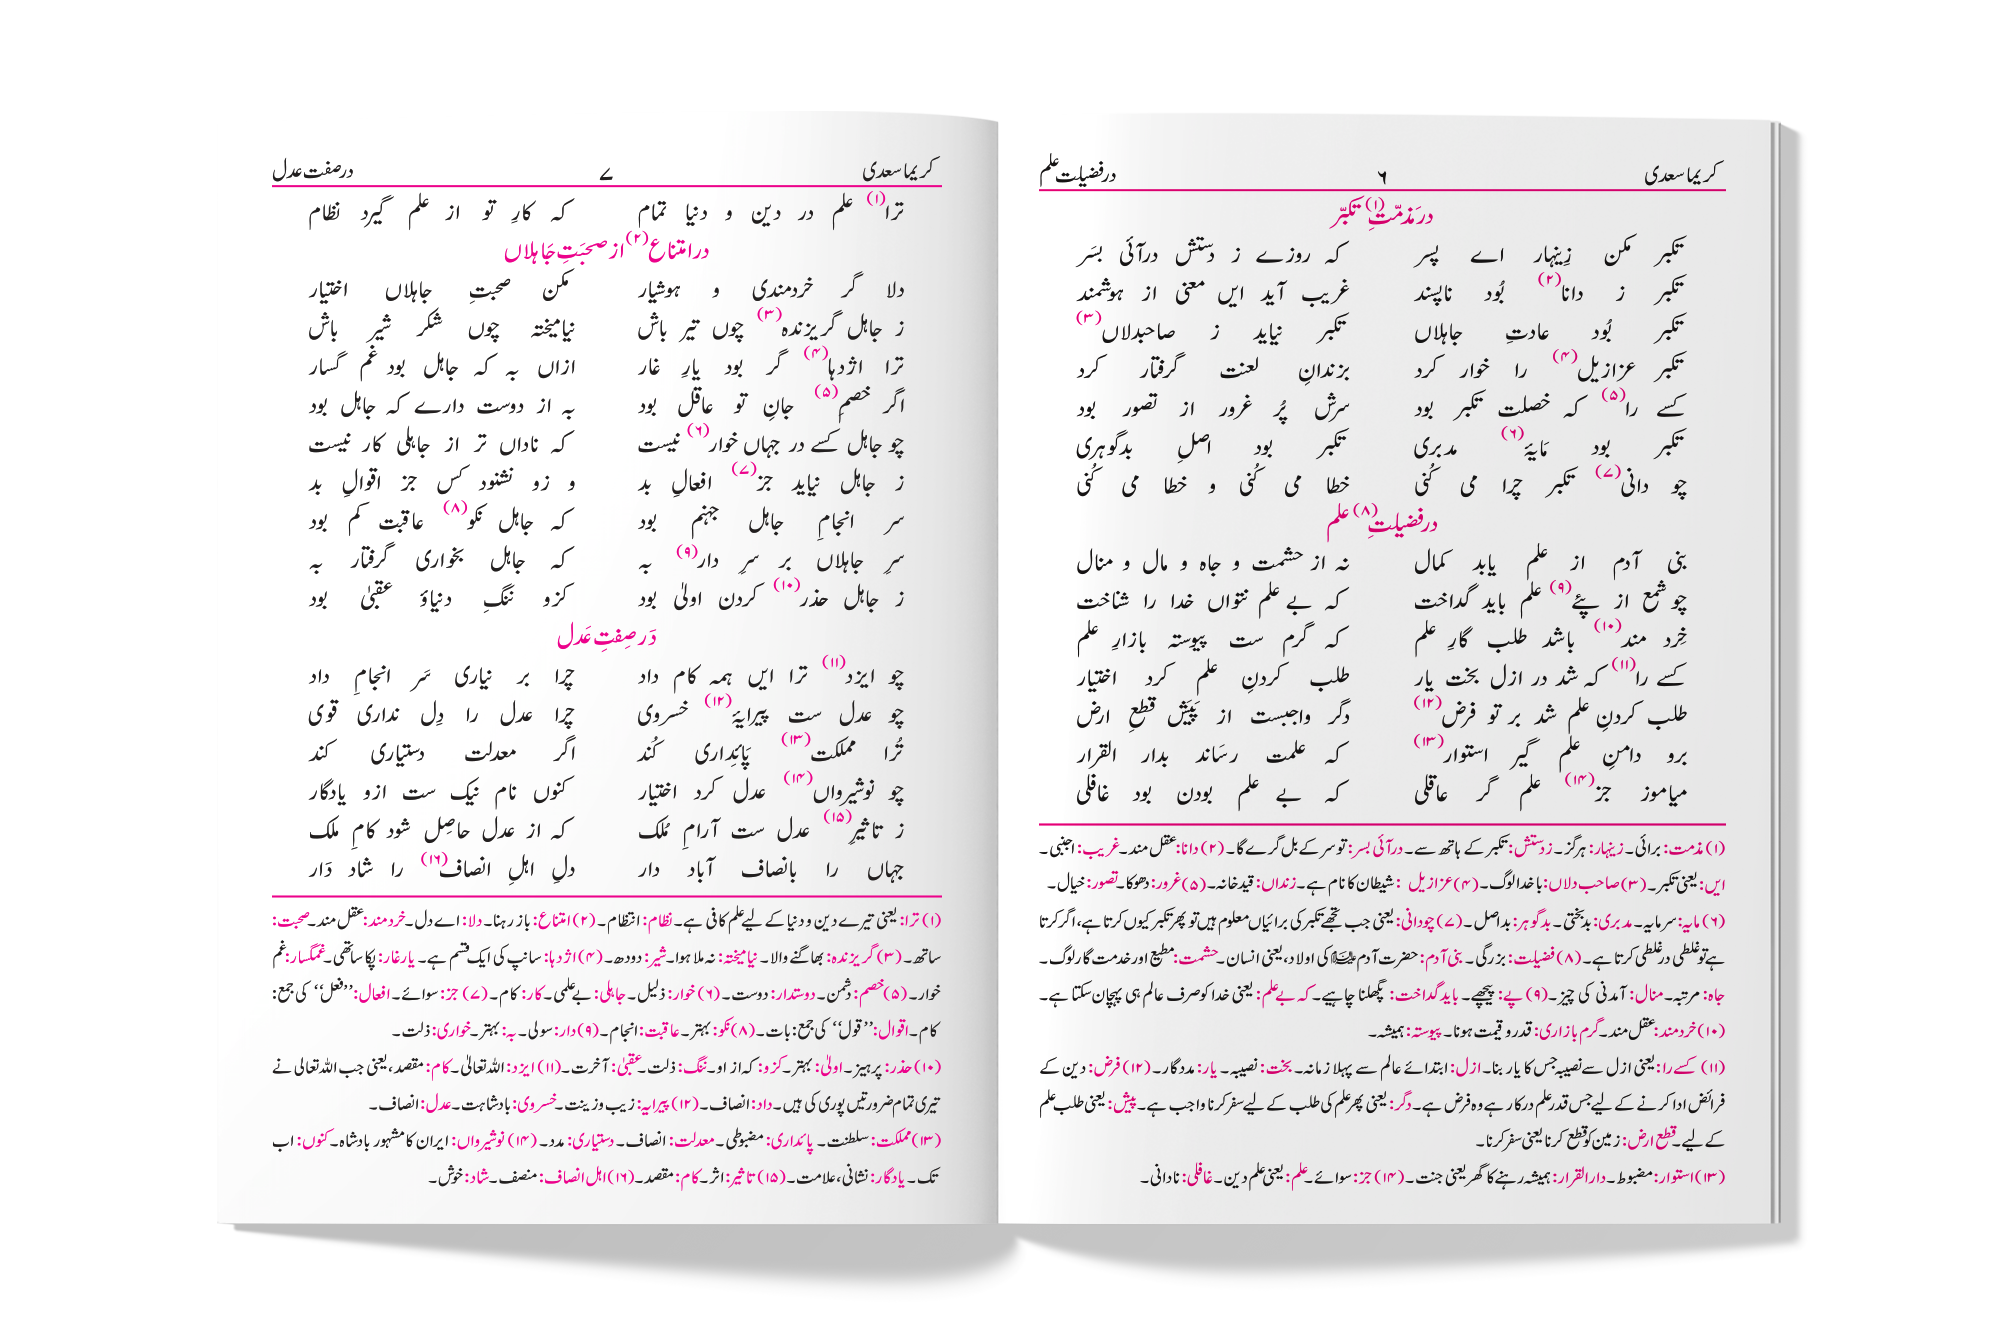 کریما سعدی ۶ در فضیلت علم
در مَذمّتِ(۱) تکبّر
تکبر مکن زِینہار اے پسر کہ روزے ز دستش درآئی بسَر
تکبر ز دانا(۲) بُود ناپسند غریب آید ایں معنی از ہوشمند
تکبر بُود عادتِ جاہلاں تکبر نیاید ز صاحبدلاں(۳)
تکبر عزازیل(۴) را خوار کرد بزندانِ لعنت گرفتار کرد
کسے را(۵) کہ خصلت تکبر بود سرش پُر غرور از تصور بود
تکبر بود مَایۂ(۶) مدبری تکبر بود اصلِ بدگوہری
چو دانی(۷) تکبر چرا می کُنی خطا می کُنی و خطا می کُنی
در فضیلتِ(۸) علم
بنی آدم از علم یابد کمال نہ از حشمت و جاہ و مال و منال
چو شمع از پئے(۹) علم باید گداخت کہ بے علم نتواں خدا را شناخت
خِرد مند(۱۰) باشد طلب گارِ علم کہ گرم ست پیوستہ بازارِ علم
کسے را(۱۱) کہ شد در ازل بخت یار طلب کردنِ علم کرد اختیار
طلب کردنِ علم شد بر تو فرض(۱۲) دگر واجبست از پَیَش قطعِ ارض
برو دامنِ علم گیر استوار(۱۳) کہ علمت رسَاند بدار القرار
میاموز جز(۱۴) علم گر عاقلی کہ بے علم بودن بود غافلی
(۱) مذمت: برائی۔ زینہار: ہرگز۔ ز دستش: تکبر کے ہاتھ سے۔ درآئی بسر: تو سر کے بل گرے گا۔ (۲) دانا: عقل مند۔ غریب: اجنبی۔
ایں: یعنی تکبر۔ (۳) صاحب دلاں: با خدا لوگ۔ (۴) عزازیل: شیطان کا نام ہے۔ زنداں: قید خانہ۔ (۵) غرور: دھوکا۔ تصور: خیال۔
(۶) مایہ: سرمایہ۔ مدبری: بدبختی۔ بدگوہر: بد اصل۔ (۷) چو دانی: یعنی جب تجھے تکبر کی برائیاں معلوم ہیں تو پھر تکبر کیوں کرتا ہے، اگر کرتا
ہے تو غلطی در غلطی کرتا ہے۔ (۸) فضیلت: بزرگی۔ بنی آدم: حضرت آدم علیہ السلام کی اولاد، یعنی انسان۔ حشمت: مطیع اور خدمت گار لوگ۔
جاہ: مرتبہ۔ منال: آمدنی کی چیز۔ (۹) پے: پیچھے۔ باید گداخت: پگھلنا چاہیے۔ کہ بے علم: یعنی خدا کو صرف عالم ہی پہچان سکتا ہے۔
(۱۰) خرد مند: عقل مند۔ گرم بازاری: قدر و قیمت ہونا۔ پیوستہ: ہمیشہ۔
(۱۱) کسے را: یعنی ازل سے نصیبہ جس کا یار بنا۔ ازل: ابتدائے عالم سے پہلا زمانہ۔ بخت: نصیبہ۔ یار: مددگار۔ (۱۲) فرض: دین کے
فرائض ادا کرنے کے لیے جس قدر علم درکار ہے وہ فرض ہے۔ دگر: یعنی پھر علم کی طلب کے لیے سفر کرنا واجب ہے۔ پیش: یعنی طلب علم
کے لیے۔ قطع ارض: زمین کو قطع کرنا یعنی سفر کرنا۔
(۱۳) استوار: مضبوط۔ دار القرار: ہمیشہ رہنے کا گھر یعنی جنت۔ (۱۴) جز: سوائے۔ علم: یعنی علم دین۔ غافلی: نادانی۔
کریما سعدی ۷ در صفت عدل
ترا(۱) علم در دین و دنیا تمام کہ کارِ تو از علم گیرد نظام
در امتناع(۲) از صحبَتِ جَاہلاں
دلا گر خردمندی و ہوشیار مکن صحبتِ جاہلاں اختیار
ز جاہل گریزندہ(۳) چوں تیر باش نیامیختہ چوں شکر شیر باش
ترا اژدہا(۴) گر بود یارِ غار ازاں بہ کہ جاہل بود غم گسار
اگر خصمِ(۵) جانِ تو عاقل بود بہ از دوست دارے کہ جاہل بود
چو جاہل کسے در جہاں خوار(۶) نیست کہ ناداں تر از جاہلی کار نیست
ز جاہل نیاید جز(۷) افعالِ بد و زو نشنود کس جز اقوالِ بد
سر انجامِ جاہل جہنم بود کہ جاہل نکو(۸) عاقبت کم بود
سرِ جاہلاں بر سرِ دار(۹) بہ کہ جاہل بخواری گرفتار بہ
ز جاہل حذر(۱۰) کردن اولیٰ بود کزو ننگِ دنیاؤ عقبیٰ بود
دَر صِفتِ عَدل
چو ایزد(۱۱) ترا ایں ہمہ کام داد چرا بر نیاری سَر انجامِ داد
چو عدل ست پیرایۂ(۱۲) خسروی چرا عدل را دِل نداری قوی
تُرا مملکت(۱۳) پَائِداری کُند اگر معدلت دستیاری کند
چو نوشیرواں(۱۴) عدل کرد اختیار کنوں نام نیک ست ازو یادگار
ز تاثیرِ(۱۵) عدل ست آرامِ مُلک کہ از عدل حاصِل شود کامِ ملک
جہاں را بانصاف آباد دار دلِ اہلِ انصاف(۱۶) را شاد دَار
(۱) ترا: یعنی تیرے دین و دنیا کے لیے علم کافی ہے۔ نظام: انتظام۔ (۲) امتناع: باز رہنا۔ دلا: اے دل۔ خردمند: عقل مند۔ صحبت:
ساتھ۔ (۳) گریزندہ: بھاگنے والا۔ نیامیختہ: نہ ملا ہوا۔ شیر: دودھ۔ (۴) اژدہا: سانپ کی ایک قسم ہے۔ یار غار: پکا ساتھی۔ غمگسار: غم
خوار۔ (۵) خصم: دشمن۔ دوستدار: دوست۔ (۶) خوار: ذلیل۔ جاہلی: بے علمی۔ کار: کام۔ (۷) جز: سوائے۔ افعال: ’’فعل‘‘ کی جمع:
کام۔ اقوال: ’’قول‘‘ کی جمع: بات۔ (۸) نکو: بہتر۔ عاقبت: انجام۔ (۹) دار: سولی۔ بہ: بہتر۔ خواری: ذلت۔
(۱۰) حذر: پرہیز۔ اولیٰ: بہتر۔ کزو: کہ از او۔ ننگ: ذلت۔ عقبیٰ: آخرت۔ (۱۱) ایزد: اللہ تعالیٰ۔ کام: مقصد، یعنی جب اللہ تعالی نے
تیری تمام ضرورتیں پوری کی ہیں۔ داد: انصاف۔ (۱۲) پیرایہ: زیب و زینت۔ خسروی: بادشاہت۔ عدل: انصاف۔
(۱۳) مملکت: سلطنت۔ پائداری: مضبوطی۔ معدلت: انصاف۔ دستیاری: مدد۔ (۱۴) نوشیرواں: ایران کا مشہور بادشاہ۔ کنوں: اب
تک۔ یادگار: نشانی، علامت۔ (۱۵) تاثیر: اثر۔ کام: مقصد۔ (۱۶) اہل انصاف: منصف۔ شاد: خوش۔